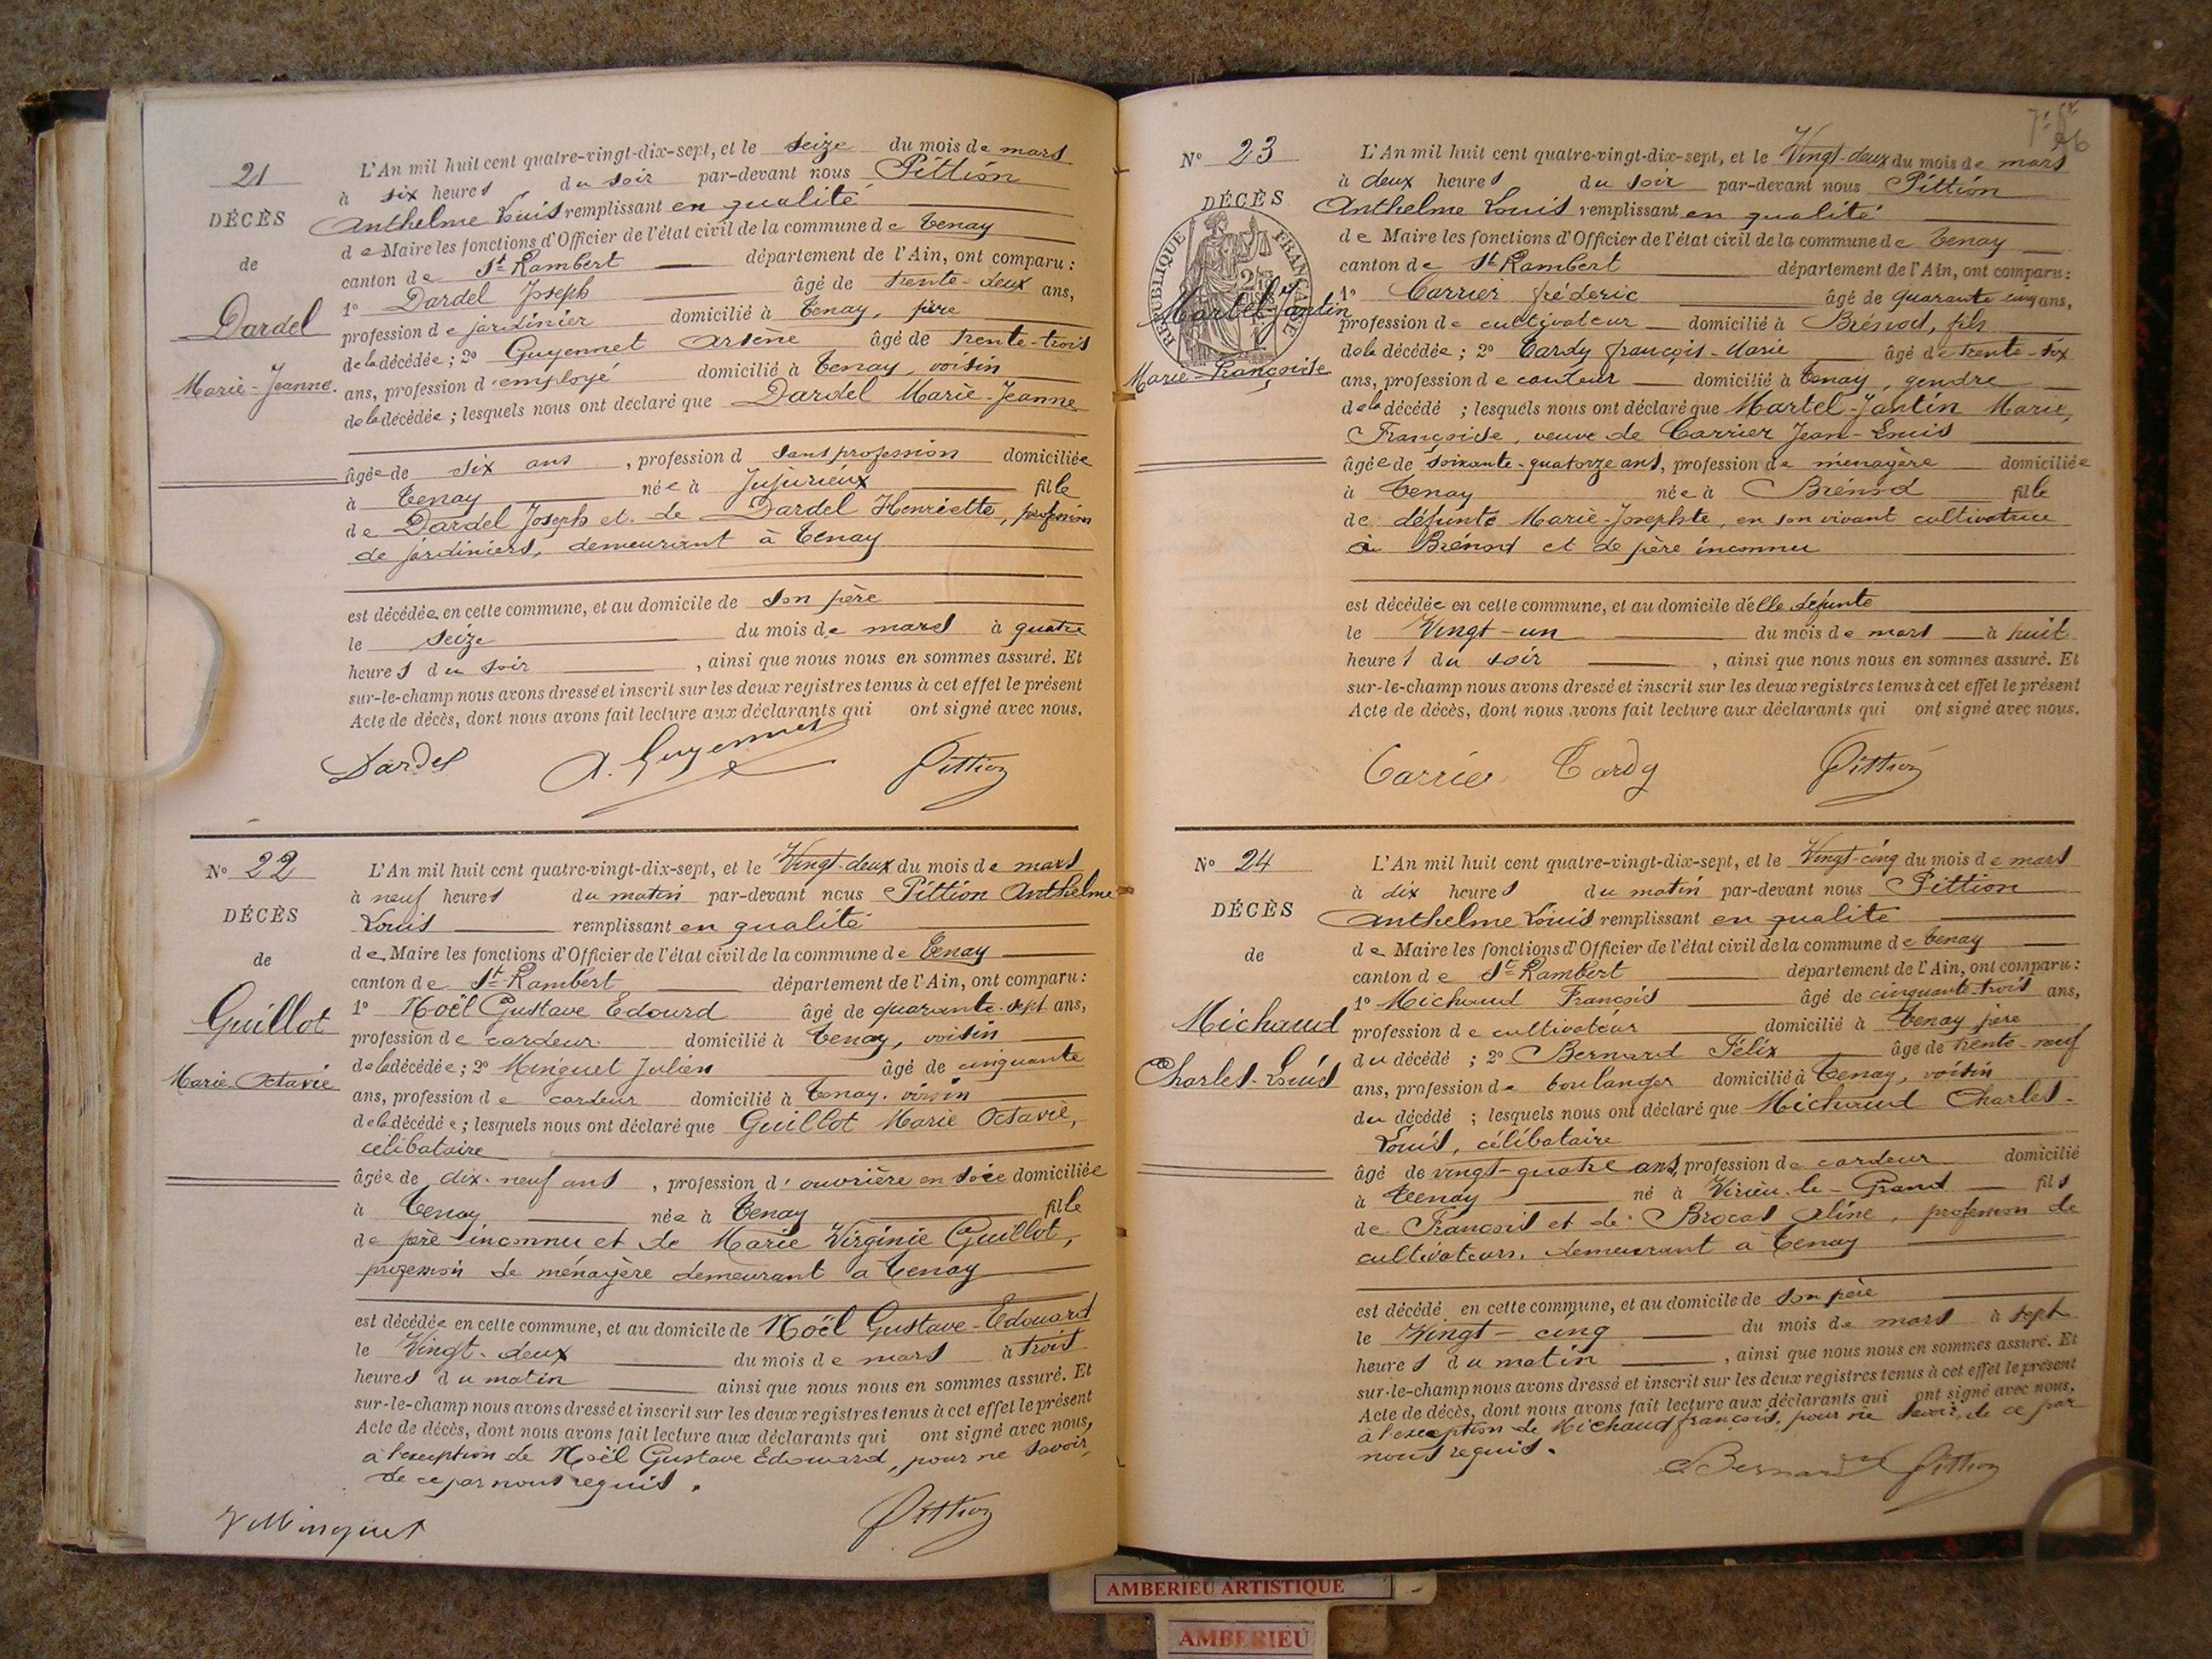 21
DÉCÈS
de
Dardel
Marie-Jeanne.
L'An mil huit cent quatre-vingt-dix-sept, et le seize du mois de mars
à six heures du soir par-devant nous Pittion
Anthelme Louis remplissant en qualité
de Maire les fonctions d'Officier de l'état civil de la commune de Tenay
canton de St Rambert département de l'Ain, ont comparu :
1° Dardel Joseph âgé de trente-deux ans,
profession de jardinier domicilié à Tenay, père
de la décédée ; 2° Guyennet Arsène âgé de trente-trois
ans, profession d'employé domicilié à Tenay, voisin
de la décédée ; lesquels nous ont déclaré que Dardel Marie-Jeanne
âgée de six ans, profession d sans profession domiciliée
à Tenay née à Jujurieux fille
de Dardel Joseph et de Dardel Henriette, profession
de jardiniers, demeurant à Tenay
est décédée en cette commune, et au domicile de son père
le seize du mois de mars à quatre
heures du soir, ainsi que nous nous en sommes assuré. Et
sur-le-champ nous avons dressé et inscrit sur les deux registres tenus à cet effet le présent
Acte de décès, dont nous avons fait lecture aux déclarants qui ont signé avec nous.
Dardel A. Guyennet Pittion
N° 22
DÉCÈS
de
Guillot
Marie-Octavie
L'An mil huit cent quatre-vingt-dix-sept, et le Vingt-deux du mois de mars
à neuf heures du matin par-devant nous Pittion Anthelme
Louis remplissant en qualité
de Maire les fonctions d'Officier de l'état civil de la commune de Tenay
canton de St Rambert département de l'Ain, ont comparu :
1° Noël Gustave Edourd âgé de quarante-sept ans,
profession de cardeur domicilié à Tenay, voisin
de la décédée ; 2° Minguet Julien âgé de cinquante
ans, profession de cardeur domicilié à Tenay, voisin
de la décédée ; lesquels nous ont déclaré que Guillot Marie Octavie,
célibataire
âgée de dix-neuf ans, profession d'ouvrière en soie domiciliée
à Tenay née à Tenay fille
de père inconnu et de Marie Virginie Guillot,
profession de ménagère demeurant à Tenay
est décédée en cette commune, et au domicile de Noël Gustave-Edouard
le Vingt-deux du mois de mars à trois
heures du matin ainsi que nous nous en sommes assuré. Et
sur-le-champ nous avons dressé et inscrit sur les deux registres tenus à cet effet le présent
Acte de décès, dont nous avons fait lecture aux déclarants qui ont signé avec nous,
à l'exception de Noël Gustave Edouard, pour ne savoir,
de ce par nous requis.
Minguet Pittion
N° 23
DÉCÈS
RÉPUBLIQUE FRANÇAISE
Martel-Jantin
Marie-Françoise
L'An mil huit cent quatre-vingt-dix-sept, et le Vingt-deux du mois de mars
à deux heures du soir par-devant nous Pittion
Anthelme Louis remplissant en qualité
de Maire les fonctions d'Officier de l'état civil de la commune de Tenay
canton de St Rambert département de l'Ain, ont comparu :
1° Carrier fréderic âgé de quarante cinq ans,
profession de cultivateur domicilié à Brénod, fils
de la décédée ; 2° Tardy françois-Marie âgé de trente-six
ans, profession de cardeur domicilié à Tenay, gendre
de la décédé ; lesquels nous ont déclaré que Martel-Jantin Marie,
Françoise, veuve de Carrier Jean-Louis
âgée de soixante-quatorze ans, profession de ménagère domiciliée
à Tenay née à Brénod fille
de défunte Marie-Josephte, en son vivant cultivatrice
à Brénod et de père inconnu
est décédée en cette commune, et au domicile d'elle défunte
le Vingt-un du mois de mars à huit
heures du soir, ainsi que nous nous en sommes assuré. Et
sur-le-champ nous avons dressé et inscrit sur les deux registres tenus à cet effet le présent
Acte de décès, dont nous avons fait lecture aux déclarants qui ont signé avec nous.
Carrier Tardy Pittion
N° 24
DÉCÈS
de
Michaud
Charles-Louis
L'An mil huit cent quatre-vingt-dix-sept, et le Vingt-cinq du mois de mars
à dix heures du matin par-devant nous Pittion
Anthelme Louis remplissant en qualité
de Maire les fonctions d'Officier de l'état civil de la commune de Tenay
canton de St Rambert département de l'Ain, ont comparu :
1° Michaud François âgé de cinquante-trois ans,
profession de cultivateur domicilié à Tenay père
du décédé ; 2° Bernard Félix âgé de trente-neuf
ans, profession de boulanger domicilié à Tenay, voisin
du décédé ; lesquels nous ont déclaré que Michaud Charles-
Louis, célibataire
âgé de vingt-quatre ans, profession de cardeur domicilié
à Tenay né à Virieu-le-Grand fils
de François et de Brocas Aline, profession de
cultivateurs, demeurant à Tenay
est décédé en cette commune, et au domicile de son père
le Vingt-cinq du mois de mars à sept
heures du matin, ainsi que nous nous en sommes assuré. Et
sur-le-champ nous avons dressé et inscrit sur les deux registres tenus à cet effet le présent
Acte de décès, dont nous avons fait lecture aux déclarants qui ont signé avec nous,
à l'exception de Michaud françois, pour ne savoir, de ce par
nous requis.
Bernard Pittion
AMBERIEU ARTISTIQUE
AMBERIEU